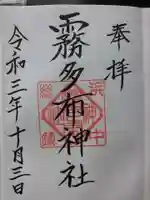 奉拝
霧多布神社
令和三年十月三日